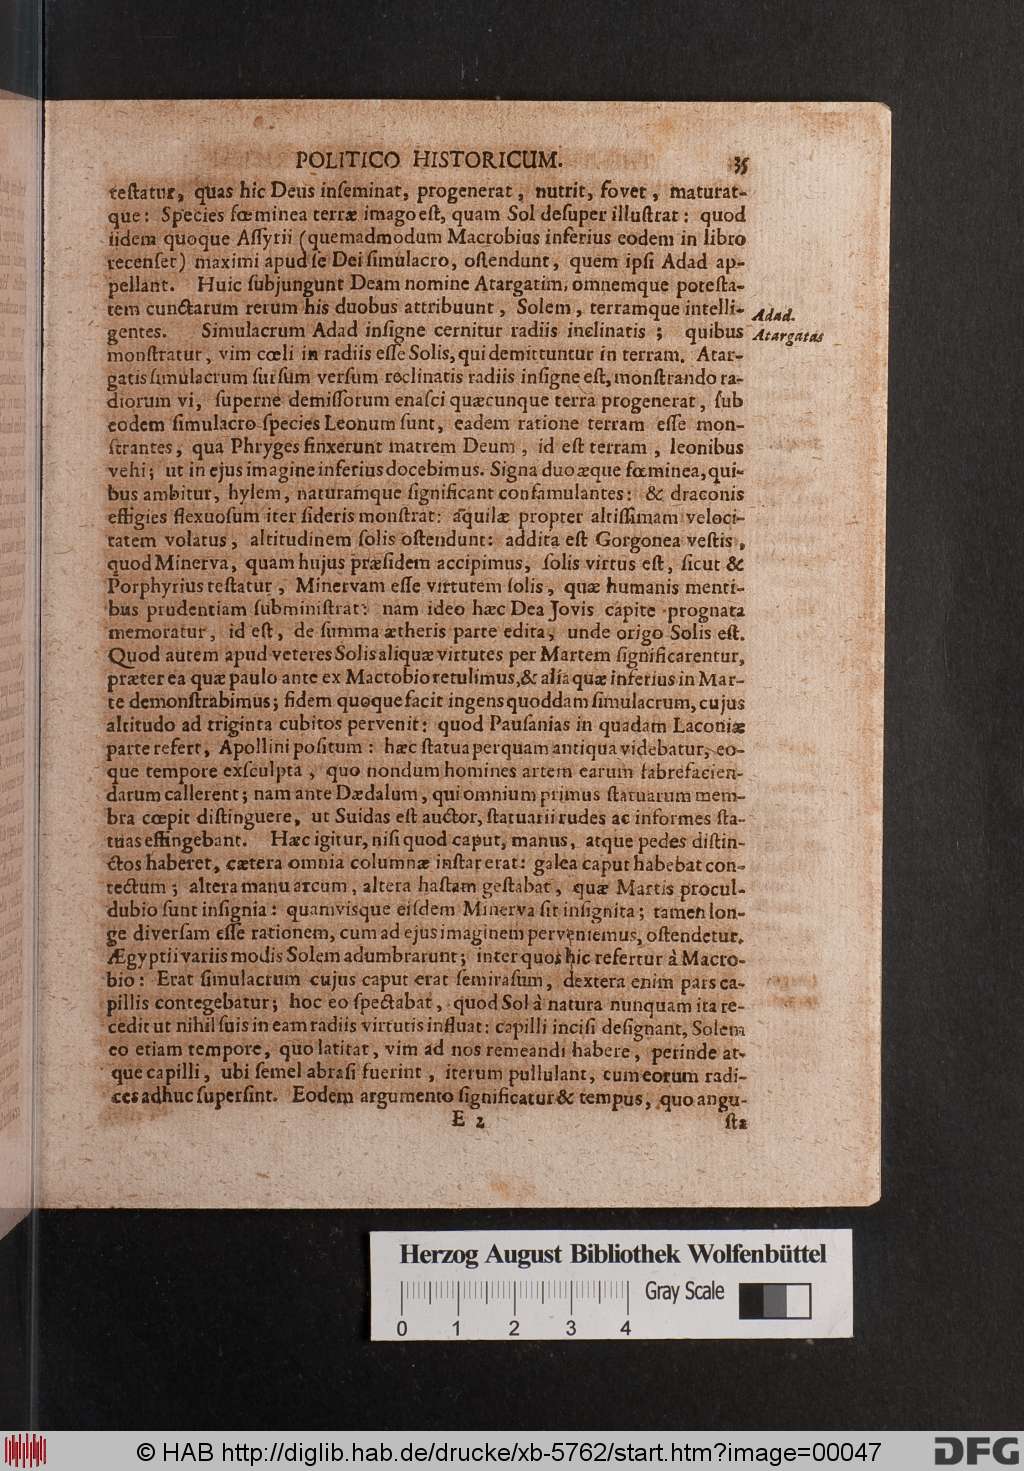 POLITICO HISTORICUM. 35
teſtatur, quas hic Deus inſeminat, progenerat, nutrit, fovet, maturat-
que: Species fœminea terræ imago eſt, quam Sol deſuper illuſtrat: quod
iidem quoque Aſſyrii (quemadmodum Macrobius inferius eodem in libro
recenſet) maximi apud ſe Dei ſimulacro, oſtendunt, quem ipſi Adad ap-
pellant. Huic ſubjungunt Deam nomine Atargatim, omnemque poteſta-
tem cunctarum rerum his duobus attribuunt, Solem, terramque intelli-
gentes. Simulacrum Adad inſigne cernitur radiis inclinatis; quibus
Adad.
Atargatas
monſtratur, vim cœli in radiis eſſe Solis, qui demittuntur in terram. Atar-
gatis ſimulacrum ſurſum verſum reclinatis radiis inſigne eſt, monſtrando ra-
diorum vi, ſuperne demiſſorum enaſci quæcunque terra progenerat, ſub
eodem ſimulacro ſpecies Leonum ſunt, eadem ratione terram eſſe mon-
ſtrantes, qua Phryges finxerunt matrem Deum, id eſt terram, leonibus
vehi; ut in ejus imagine inferius docebimus. Signa duo æque fœminea, qui-
bus ambitur, hylem, naturamque ſignificant confamulantes: & draconis
effigies flexuoſum iter ſideris monſtrat: aquilæ propter altiſſimam veloci-
tatem volatus, altitudinem ſolis oſtendunt: addita eſt Gorgonea veſtis,
quod Minerva, quam hujus præſidem accipimus, ſolis virtus eſt, ſicut &
Porphyrius teſtatur, Minervam eſſe virtutem ſolis, quæ humanis menti-
bus prudentiam ſubminiſtrat: nam ideo hæc Dea Jovis capite prognata
memoratur, id eſt, de ſumma ætheris parte edita, unde origo Solis eſt.
Quod autem apud veteres Solis aliquæ virtutes per Martem ſignificarentur,
præter ea quæ paulo ante ex Mactobio retulimus, & alia quæ inferius in Mar-
te demonſtrabimus; fidem quoque facit ingens quoddam ſimulacrum, cujus
altitudo ad triginta cubitos pervenit: quod Pauſanias in quadam Laconiæ
parte refert, Apollini poſitum: hæc ſtatua perquam antiqua videbatur, eo-
que tempore exſculpta, quo nondum homines artem earum fabrefacien-
darum callerent; nam ante Dædalum, qui omnium primus ſtatuarum mem-
bra cœpit diſtinguere, ut Suidas eſt auctor, ſtatuarii rudes ac informes ſta-
tuas effingebant. Hæc igitur, niſi quod caput, manus, atque pedes diſtin-
ctos haberet, cætera omnia columnæ inſtar erat: galea caput habebat con-
tectum; altera manu arcum, altera haſtam geſtabat, quæ Martis procul-
dubio ſunt inſignia: quamvisque eiſdem Minerva ſit inſignita; tamen lon-
ge diverſam eſſe rationem, cum ad ejus imaginem perveniemus, oſtendetur.
Ægyptii variis modis Solem adumbrarunt; inter quos hic refertur à Macro-
bio: Erat ſimulacrum cujus caput erat ſemiraſum, dextera enim pars ca-
pillis contegebatur; hoc eo ſpectabat, quod Sol à natura nunquam ita re-
cedit ut nihil ſuis in eam radiis virtutis influat: capilli inciſi deſignant, Solem
eo etiam tempore, quo latitat, vim ad nos remeandi habere, perinde at-
que capilli, ubi ſemel abraſi fuerint, iterum pullulant, cum eorum radi-
ces adhuc ſuperſint. Eodem argumento ſignificatur & tempus, quo angu-
E 2 ſta
Herzog August Bibliothek Wolfenbüttel
Gray Scale
0 1 2 3 4
© HAB http://diglib.hab.de/drucke/xb-5762/start.htm?image=00047
DFG